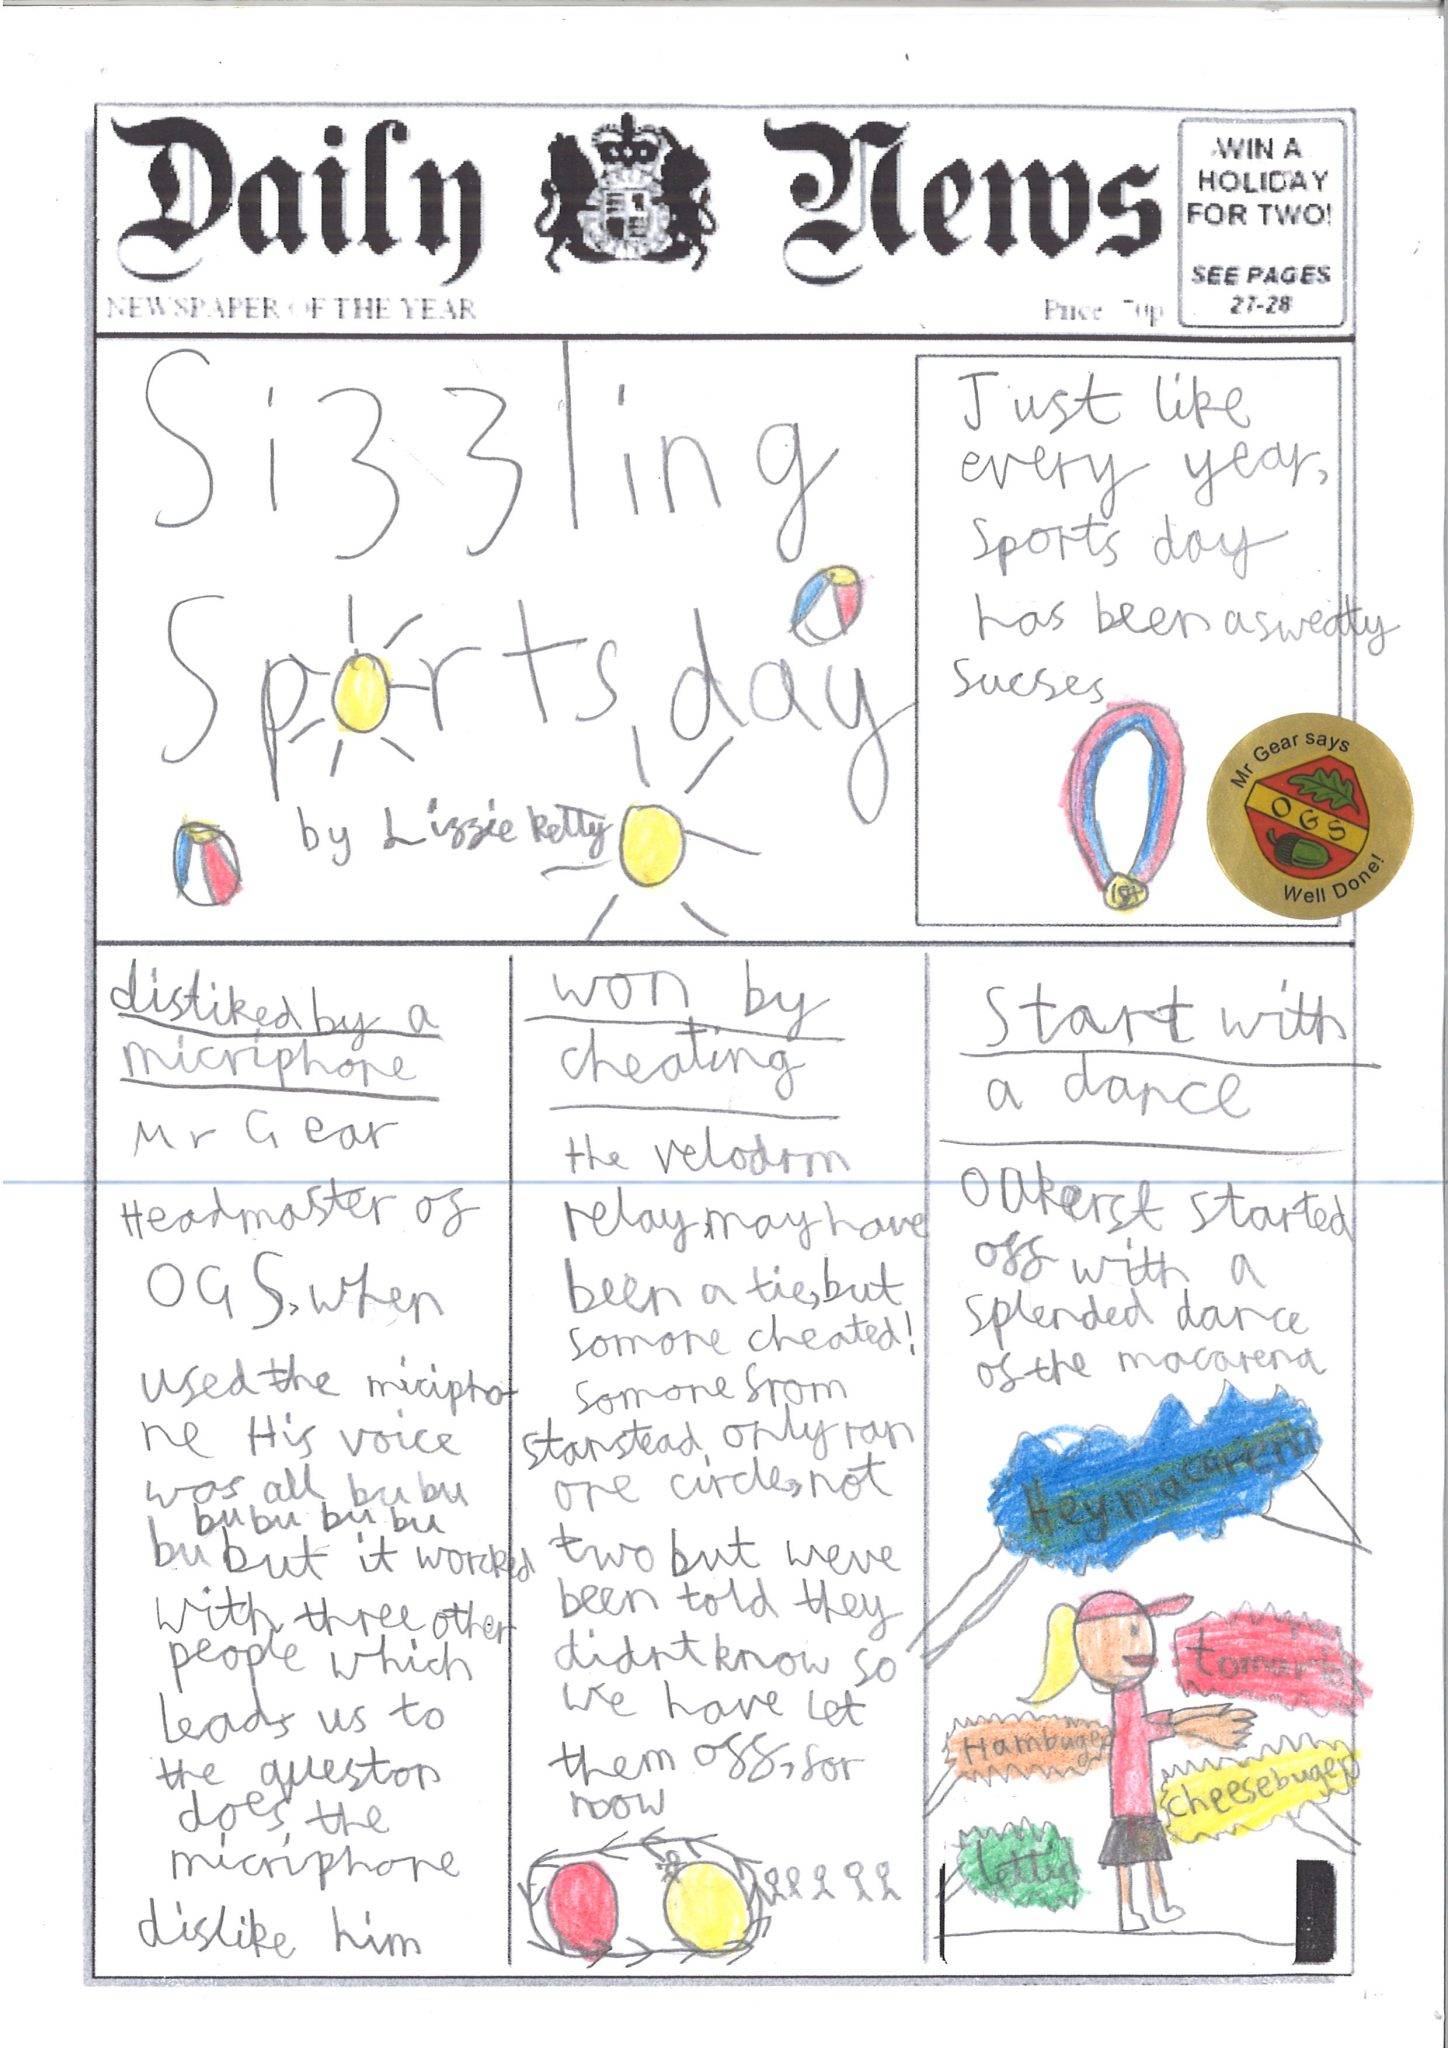 Daily News
NEWSPAPER OF THE YEAR
Price 70p
WIN A
HOLIDAY
FOR TWO!
SEE PAGES
27-28
Sizzling
Sports day
by Lizzie Ketty
Just like
every year,
sports day
has been a sweaty
sucses
1st
Mr Gear says
OGS
Well Done!
disliked by a
micriphone
Mr Gear
Headmaster of
OGS, when
used the micipho
ne His voice
was all bu bu
bu bu bu bu
bu but it worcked
with three other
people which
leads us to
the queston
does the
micriphone
dislike him
won by
cheating
the velodrm
relay, may have
been a tie, but
somone cheated!
somone from
stanstead only ran
one circle, not
two but weve
been told they
didnt know so
we have let
them off, for
noow
Start with
a dance
Oakerst started
off with a
splended dance
of the macarena
Hey macarena
tomarto
Hambuger
cheesebuger